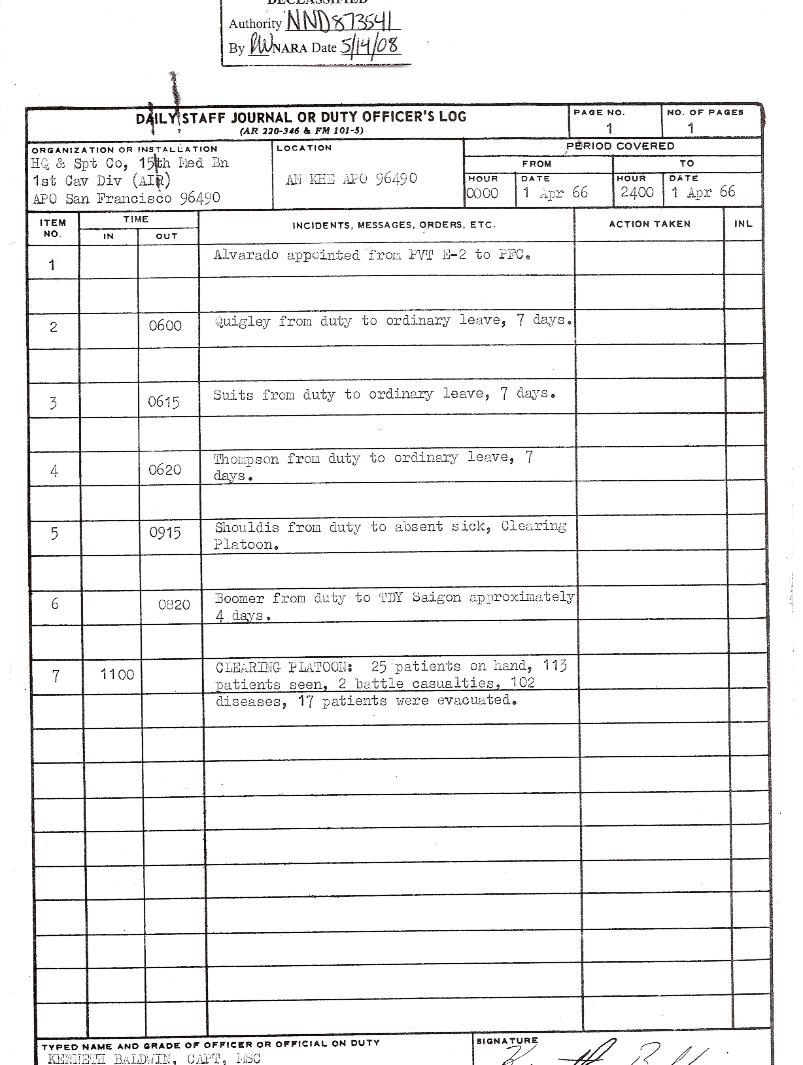 DECLASSIFIED
Authority NND873541
By NARA Date 5/14/08
DAILY STAFF JOURNAL OR DUTY OFFICER'S LOG
(AR 220-346 & FM 101-5)
PAGE NO.
1
NO. OF PAGES
1
ORGANIZATION OR INSTALLATION
HQ & Spt Co, 15th Med Bn
1st Cav Div (AIR)
APO San Francisco 96490
LOCATION
AN KHE APO 96490
PERIOD COVERED
FROM
TO
HOUR
0000
DATE
1 Apr 66
HOUR
2400
DATE
1 Apr 66
ITEM NO.
TIME
IN
OUT
INCIDENTS, MESSAGES, ORDERS, ETC.
ACTION TAKEN
INL
1
Alvarado appointed from PVT E-2 to PFC.
2 0600 Quigley from duty to ordinary leave, 7 days.
3 0615 Suits from duty to ordinary leave, 7 days.
4 0620 Thompson from duty to ordinary leave, 7
days.
5 0915 Shouldis from duty to absent sick, Clearing
Platoon.
6 0820 Boomer from duty to TDY Saigon approximately
4 days.
7 1100 CLEARING PLATOON: 25 patients on hand, 113
patients seen, 2 battle casualties, 102
diseases, 17 patients were evacuated.
TYPED NAME AND GRADE OF OFFICER OR OFFICIAL ON DUTY
KENNETH BALDWIN, CAPT, MSC
SIGNATURE